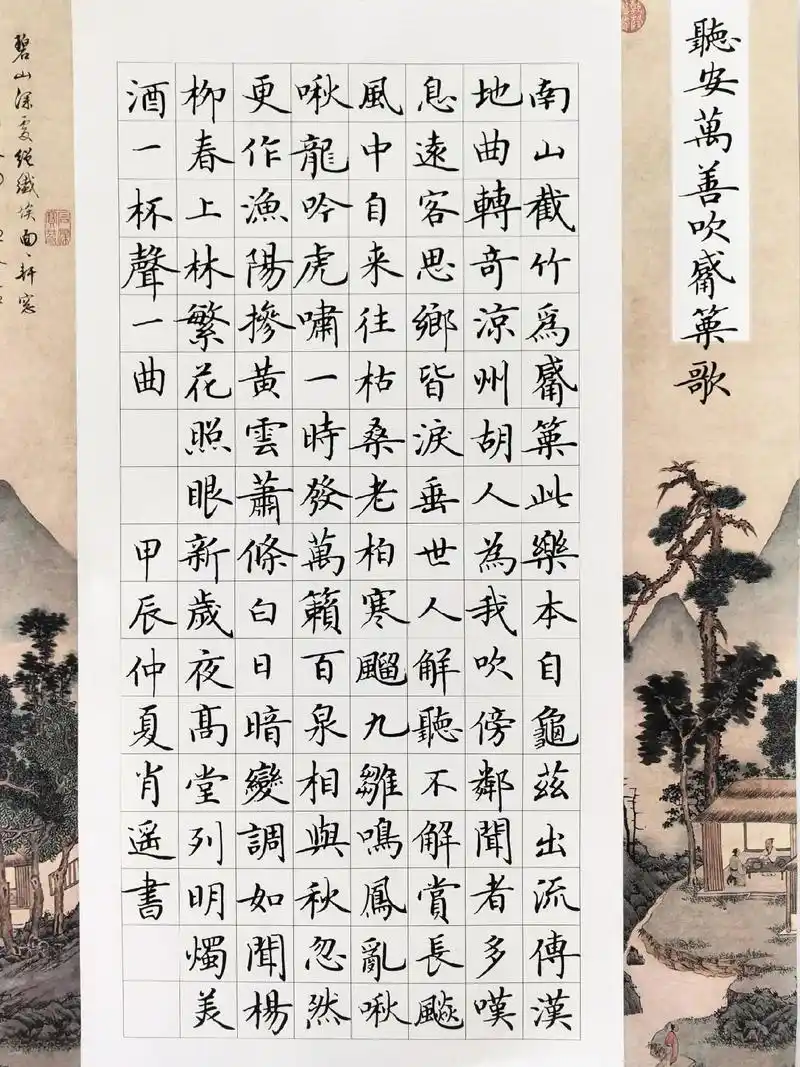 聽安萬善吹觱篥歌
南山截竹爲觱篥此樂本自龜茲出流傳漢
地曲轉奇涼州胡人為我吹傍鄰聞者多嘆
息遠客思鄉皆淚垂世人解聽不解賞長飈
風中自来往枯桑老柏寒飀九雛鳴鳳亂啾
啾龍吟虎嘯一時發萬籟百泉相與秋忽然
更作漁陽摻黃雲蕭條白日暗變調如聞楊
柳春上林繁花照眼新歲夜髙堂列明燭美
酒一杯聲一曲 甲辰仲夏肖遥書
碧山深處絕纖埃面〻軒窓